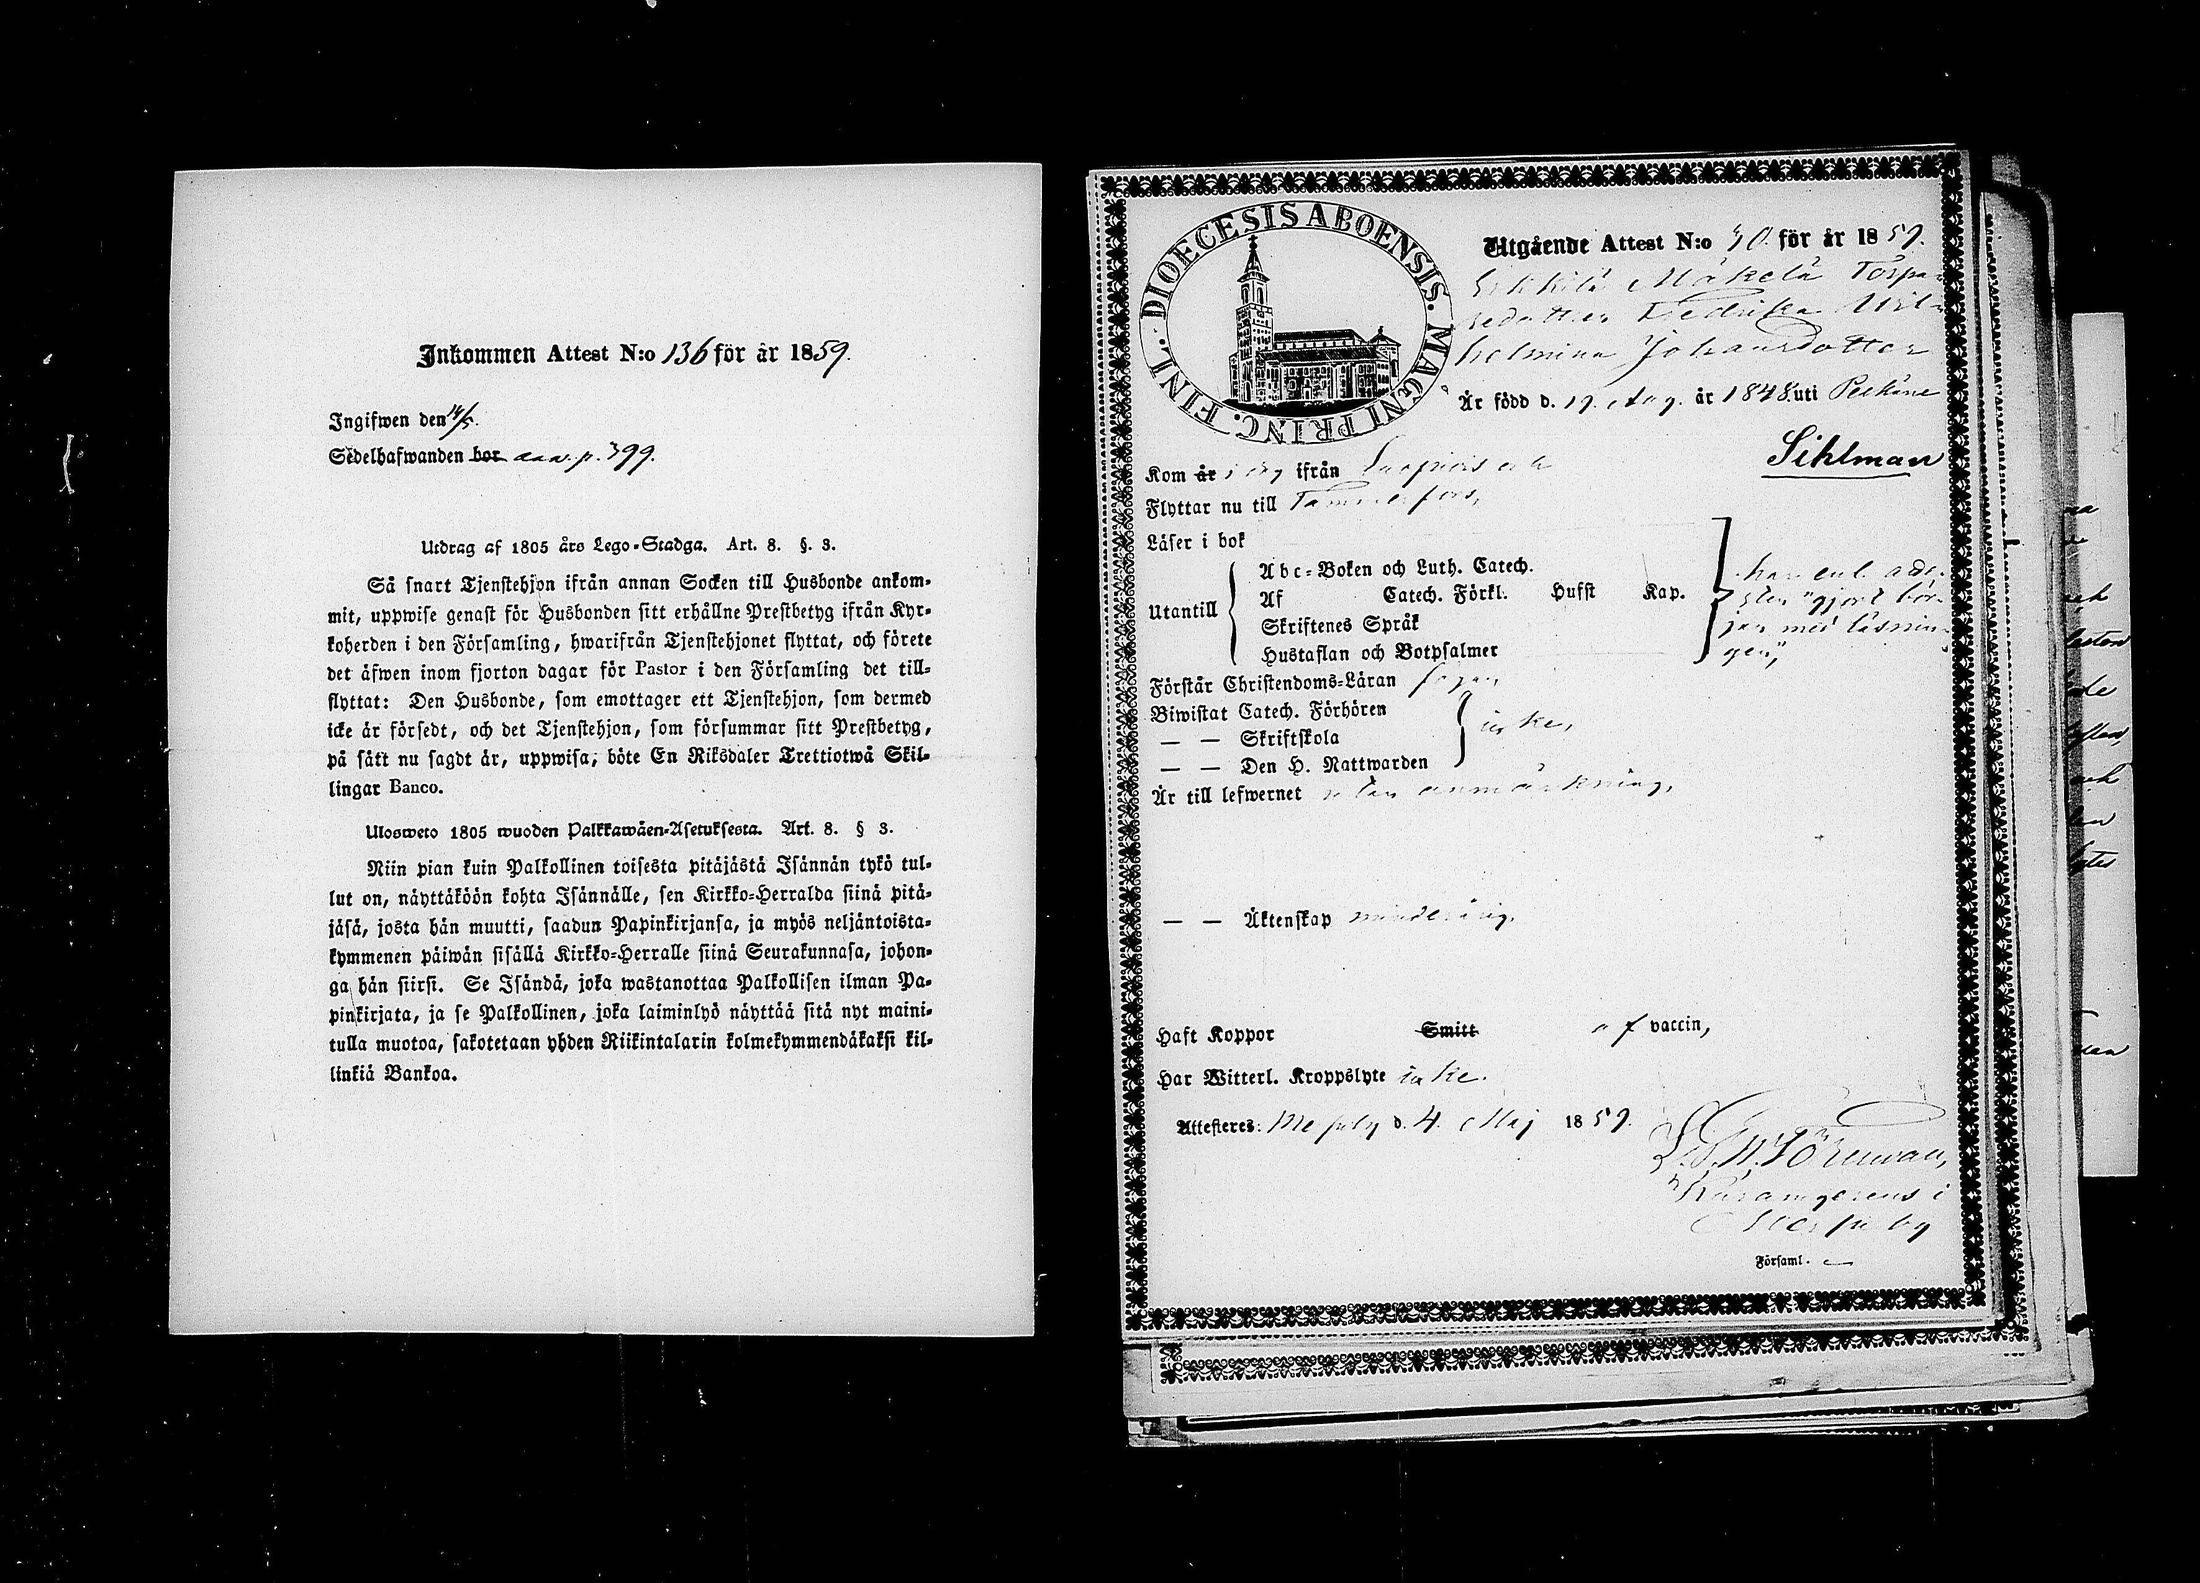 Inkommen Attest N:o 136 för år 1859.
Ingifwen den 14/5.
Sedelhafwanden bor p. 399.
Utdrag af 1805 års Lego-Stadga. Art. 8. §. 3.
Så snart Tjenstehjon ifrån annan Socken till Husbonde ankom-
mit, uppwise genast för Husbonden sitt erhållne Prestbetyg ifrån Kyr-
koherden i den Församling, hwarifrån Tjenstehjonet flyttat, och förete
det äfwen inom fjorton dagar för Pastor i den Församling det till-
flyttat: Den Husbonde, som emottager ett Tjenstehjon, som dermed
icke är försedt, och det Tjenstehjon, som försummar sitt Prestbetyg,
på sätt nu sagdt är, uppwisa, böte En Riksdaler Trettiotwå Skil-
lingar Banco.
Ulosweto 1805 wuoden Palkkawäen-Asetuksesta. Art. 8. § 3.
Niin pian kuin Palkollinen toisesta pitäjästä Isännän tykö tul-
lut on, näyttäköön kohta Isännälle, sen Kirkko-Herralda siinä pitä-
jäsä, josta hän muutti, saadun Papinkirjansa, ja myös neljäntoista-
kymmenen päiwän sisällä Kirkko-Herralle siinä Seurakunnasa, johon-
ga hän siirsi. Se Isändä, joka wastanottaa Palkollisen ilman Pa-
pinkirjata, ja se Palkollinen, joka laiminlyö näyttää sitä nyt maini-
tulla muotoa, sakotetaan yhden Riikintalarin kolmekymmendäkaksi kil-
linkiä Bankoa.
DIOECESIS ABOENSIS. MAGNI PRINC. FINL.
Utgående Attest N:o 30. för år 1859.
Erkkilä Mäkelä Torpa-
redotter Fredrika Wil-
helmina Johansdotter
Är född d. 19. Aug. år 1848. uti Pelkäne
Sihlman
Kom år ifrån
Flyttar nu till Tammerfors,
Läser i bok
Utantill
Abc-Boken och Luth. Catech.
Af Catech. Förkl. Hufst Kap.
Skriftenes Språk
Hustaflan och Botpsalmer
har enl.
"gjort bör-
jan med läsnin-
gen",
Förstår Christendoms-Läran
Biwistat Catech. Förhören
— — Skriftskola
— — Den H. Nattwarden
icke,
Är till lefwernet utan anmärkning,
— — Äktenskap minderårig.
Haft Koppor Smitt af vaccin,
Har Witterl. Kroppslyte icke.
Attesteres: Messuby d. 4. Maj 1859.
Församl.